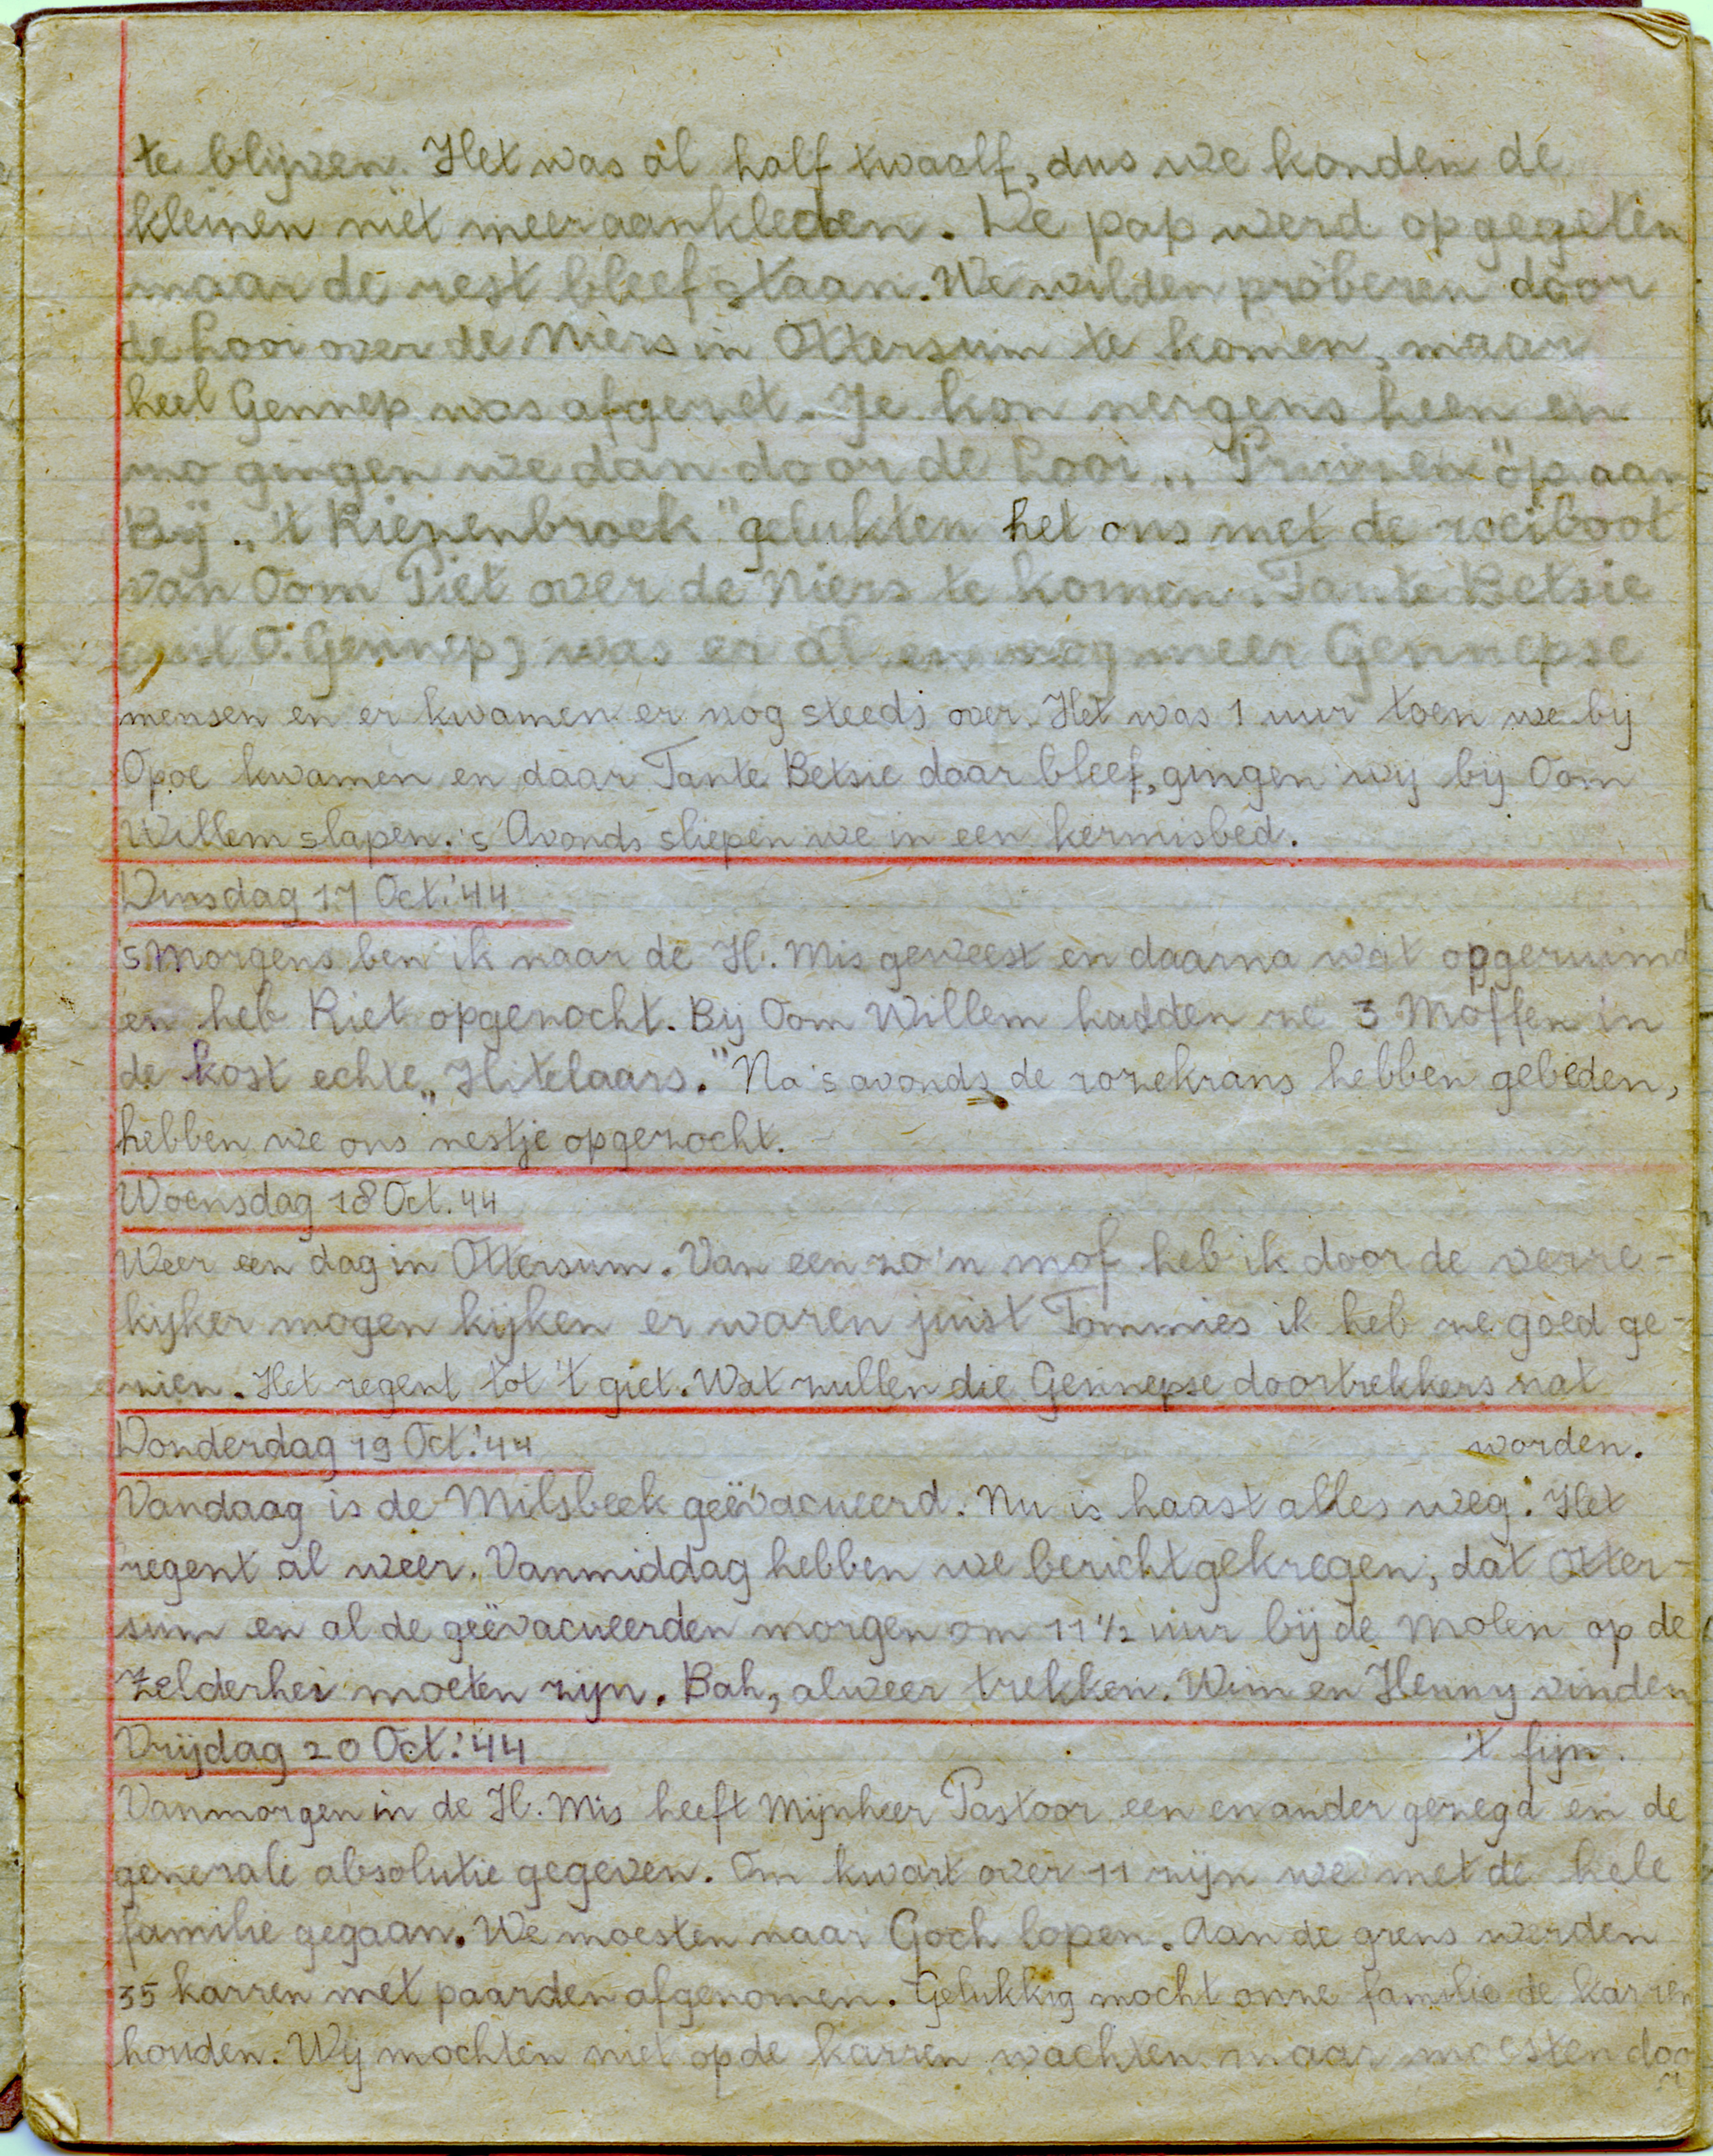 te blijven. Het was al half twaalf, dus we konden de
kleinen niet meer aankleden. De pap werd opgegeten
maar de rest bleef staan. We wilden proberen door
de hooi over de Niers in Ottersum te komen, maar
heel Gennep was afgezet. Je kon nergens heen en
zo gingen we dan door de hooi „ "op aan
Bij „'t Riezenbroek" gelukten het ons met de roeiboot
van Oom Piet over de Niers te komen. Tante Betsie
(uit O. Gennep) was er al en nog meer Gennepse
mensen en er kwamen er nog steeds over. Het was 1 uur toen we bij
Opoe kwamen en daar Tante Betsie daar bleef, gingen wij bij Oom
Willem slapen. 's Avonds sliepen we in een kermisbed.
Dinsdag 17 Oct. '44
'sMorgens ben ik naar de H. Mis geweest en daarna wat opgeruimd
en heb Riet opgezocht. Bij Oom Willem hadden ze 3 Moffen in
de kost echte „Hitelaars." Na 's avonds de rozekrans hebben gebeden,
hebben we ons nestje opgezocht.
Woensdag 18 Oct. 44
Weer een dag in Ottersum. Van een zo'n mof heb ik door de verre-
kijker mogen kijken er waren juist Tommies ik heb ze goed ge-
zien. Het regent tot 't giet. Wat zullen die Gennepse doortrekkers nat
worden.
Donderdag 19 Oct. '44
Vandaag is de Milsbeek geëvacueerd. Nu is haast alles weg. Het
regent al weer. Vanmiddag hebben we bericht gekregen, dat Otter-
sum en al de geëvacueerden morgen om 11 1/2 uur bij de Molen op de
Zelderhei moeten zijn. Bah, alweer trekken. Wim en Henny vinden
't fijn.
Vrijdag 20 Oct. '44
Vanmorgen in de H. Mis heeft Mijnheer Pastoor een en ander gezegd en de
generale absolutie gegeven. Om kwart over 11 zijn we met de hele
familie gegaan. We moesten naar Goch lopen. Aan de grens werden
35 karren met paarden afgenomen. Gelukkig mocht onze familie de karren
houden. Wij mochten niet op de karren wachten maar moesten door